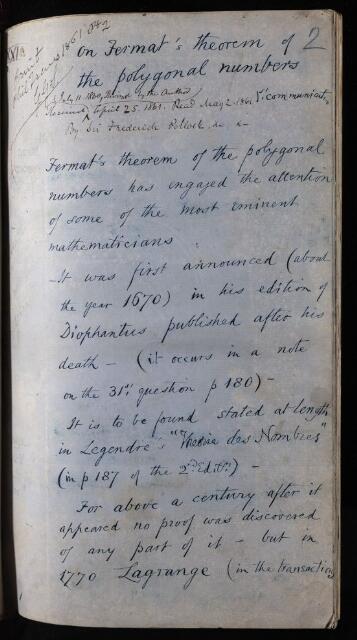 On Fermat's theorem of 2
the polygonal numbers
Received April 25. 1861. Read May 2. 1861
By Sir Frederick Pollock, &c. &c.
Fermat's theorem of the polygonal
numbers has engaged the attention
of some of the most eminent
mathematicians
It was first announced (about
the year 1670) in his edition of
Diophantus published after his
death – (it occurs in a note
on the 31st question p 180) –
It is to be found stated at length
in Legendre's "Théorie des Nombres"
(in p 187 of the 2d Editn) –
For above a century after it
appeared no proof was discovered
of any part of it – but in
1770 Lagrange (in the transactions